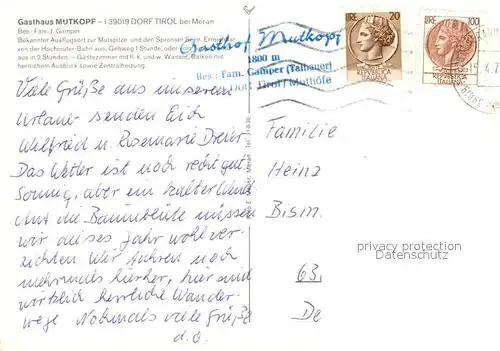 Gasthaus MUTKOPF – I 39019 DORF TIROL bei Meran
Bes.: Fam. J. Gamper
Bekannter Ausflugsort zur Mutspitze und den Spronser Seen. Erreichbar
von der Hochmuter-Bahn aus, Gehweg 1 Stunde, oder
aus in 2 Stunden. – Gästezimmer mit fl. k. und w. Wasser, Balkon mit
herrlichem Ausblick sowie Zentralheizung.
Gasthof Mutkopf
1800 m
Bes.: Fam. Gamper (Talbauer)
Dorf Tirol / Muthöfe
LIRE 20
REPVBBLICA
ITALIANA
LIRE 100
REPVBBLICA
ITALIANA
Viele Grüße aus unserem
Urlaub senden Euch
Wilfried u. Rosemarie Dreier
Das Wetter ist noch recht gut.
Sonnig, aber ein kalter Wind.
Auf die Baumblüte müssen
wir dieses Jahr wohl ver-
zichten. Wir fahren noch
mehrmals hierher, hier sind
wirklich herrliche Wander-
wege. Nochmals viele Grüße
d. O.
Familie
Heinz
Bism.
63.
De
privacy protection
Datenschutz